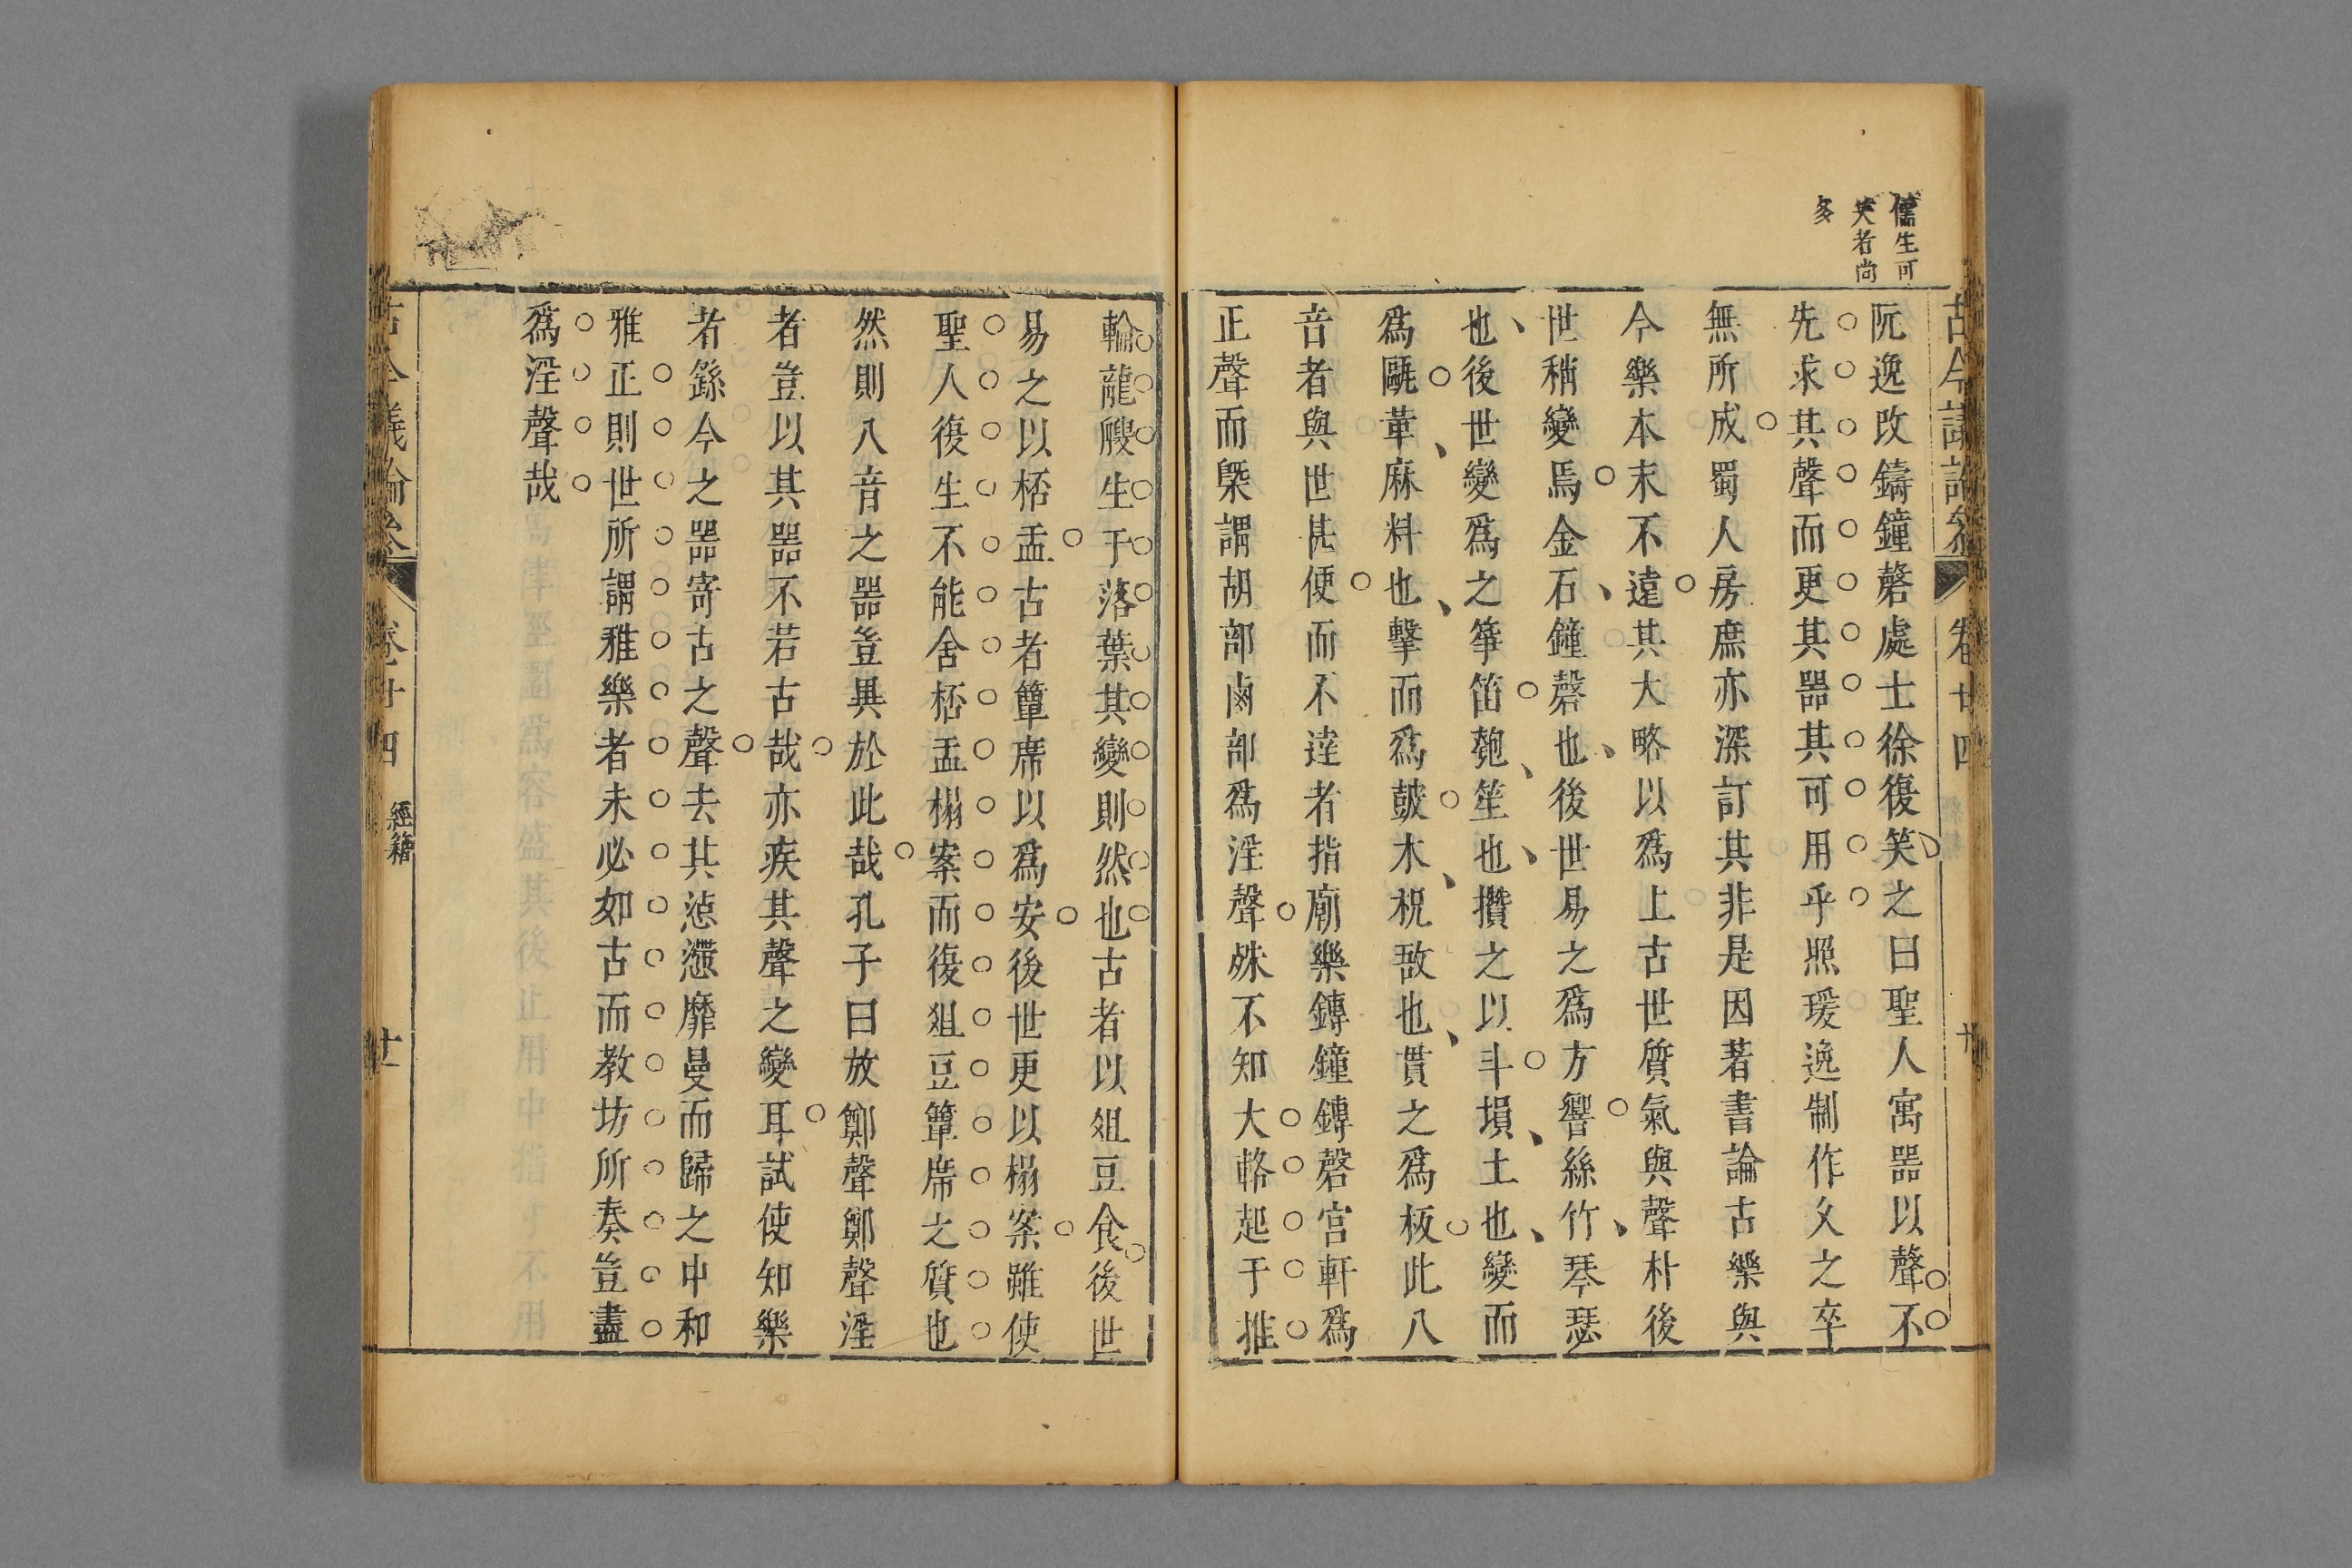 儒生可
笑者尚
多
阮逸改鑄鐘磬處士徐復笑之曰聖人寓器以聲不
先求其聲而更其器其可用乎照瑗逸制作乆之卒
無所成蜀人房庶亦深訂其非是因著書論古樂與
今樂本末不遠其大略以爲上古世質氣與聲朴後
世稍變焉金石鐘磬也後世易之爲方響絲竹琴瑟
也後世變爲之箏笛匏笙也攢之以斗塤土也變而
爲甌革麻料也擊而爲皷木柷敔也貫之爲板此八
音者與世甚便而不達者指廟樂鎛鐘鎛磬宮軒爲
正聲而槩謂胡部鹵部爲淫聲殊不知大輅起于推
輪龍艘生于落葉其變則然也古者以俎豆食後世
易之以桮盂古者簟席以爲安後世更以榻案雖使
聖人復生不能舍桮盂榻案而復俎豆簟席之質也
然則八音之器豈異於此哉孔子曰放鄭聲鄭聲淫
者豈以其器不若古哉亦疾其聲之變耳試使知樂
者繇今之器寄古之聲去其惉懘靡曼而歸之中和
雅正則世所謂雅樂者未必如古而教坊所奏豈盡
爲淫聲哉
古今議論參
卷廿四
經籍
廿